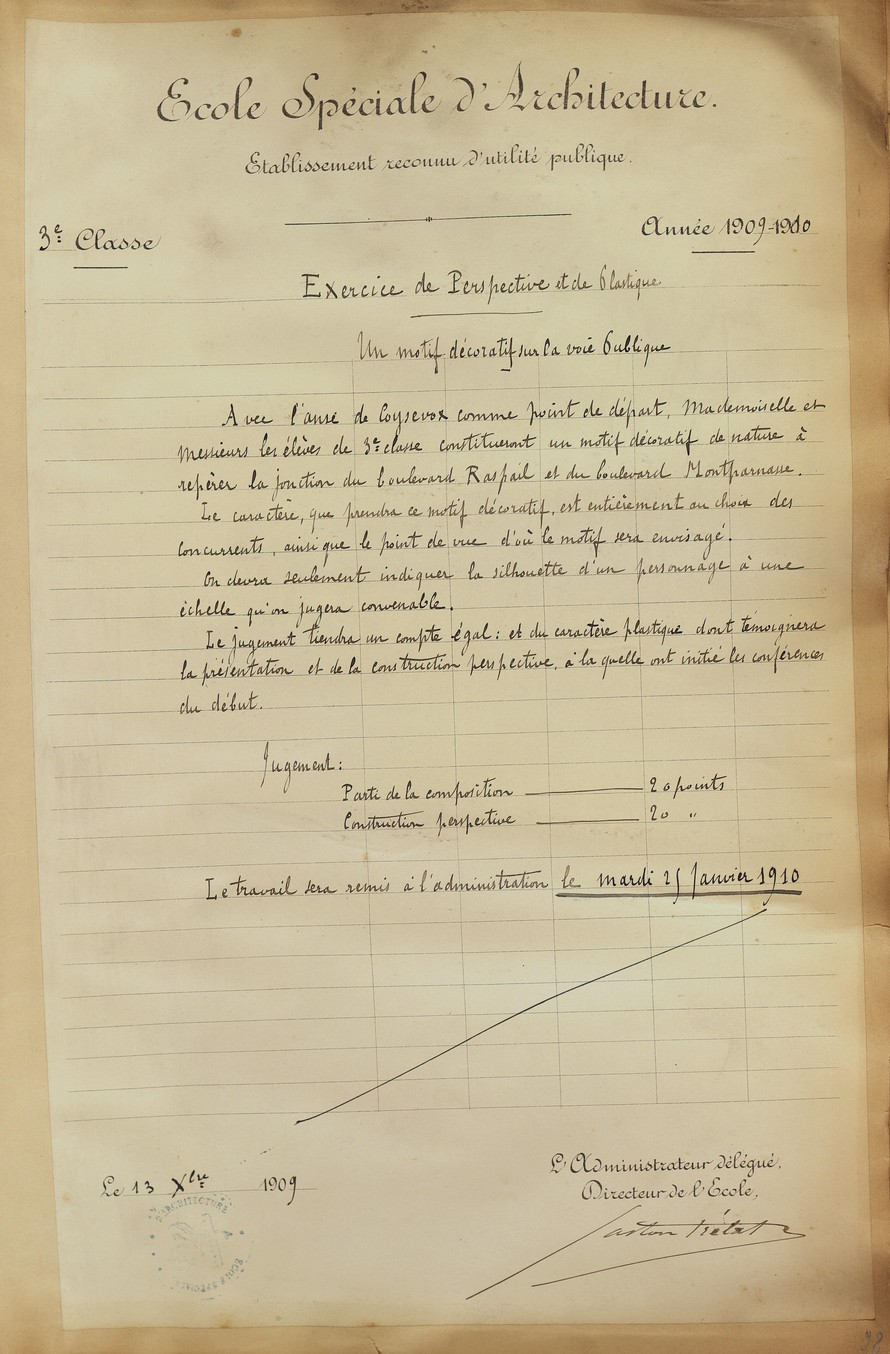 Ecole Spéciale d'Architecture.
Etablissement reconnu d'utilité publique.
3e Classe
Année 1909-1910
Exercice de Perspective et de Plastique
Un motif décoratif sur la voie Publique
Avec l'œuvre de Coysevox comme point de départ, Mademoiselle et
Messieurs les élèves de 3e classe constitueront un motif décoratif de nature à
repérer la jonction du boulevard Raspail et du boulevard Montparnasse.
Le caractère, que prendra ce motif décoratif, est entièrement au choix des
concurrents, ainsi que le point de vue d'où le motif sera envisagé.
On devra seulement indiquer la silhouette d'un personnage à une
échelle qu'on jugera convenable.
Le jugement tiendra un compte égal: et du caractère plastique dont témoignera
la présentation et de la construction perspective, à la quelle ont initié les conférences
du début.
Jugement:
Parti de la composition — 20 points
Construction perspective — 20 "
Le travail sera remis à l'administration le mardi 25 Janvier 1910
L'Administrateur délégué,
Directeur de l'Ecole,
Le 13 Xbre 1909
Gaston Trélat
D'ARCHITECTURE
ECOLE SPECIALE
38